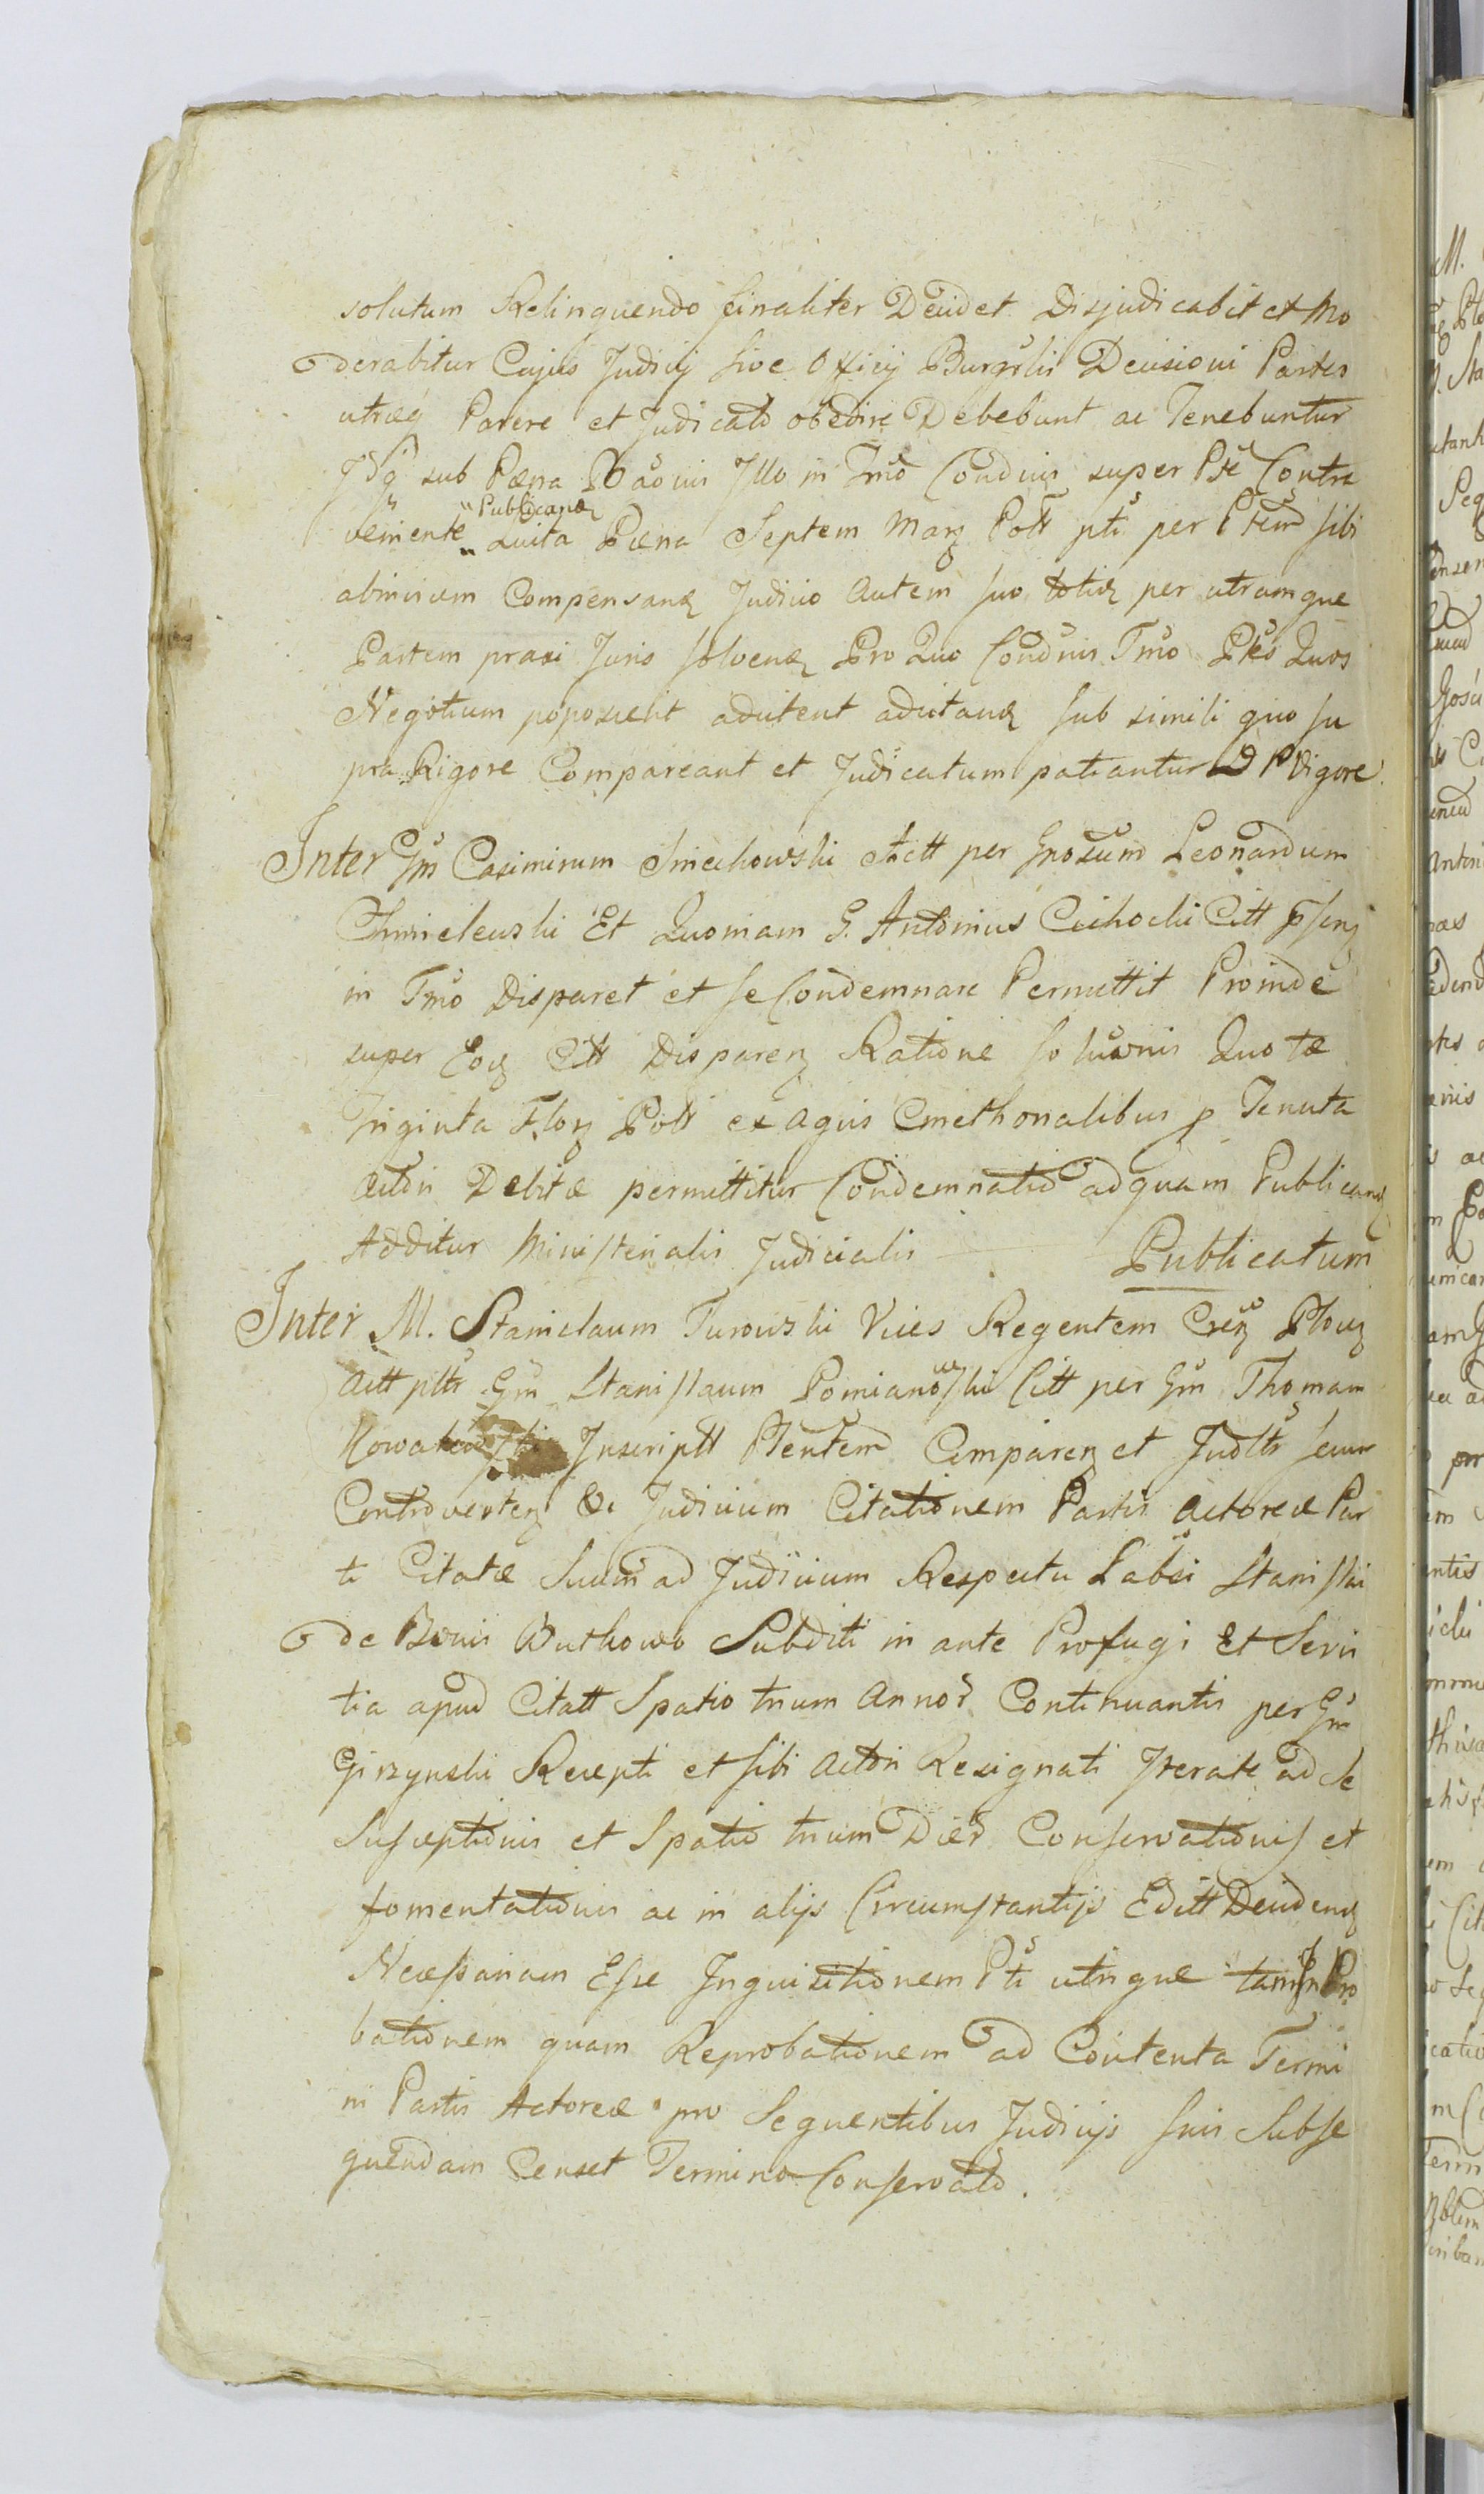 solutum Relinquendo finaliter Decidet Disjudicabit et Mo
derabitur Cujus Judicij sive Officij Burgrlis Decisioni Partes
utraeq Parere et Judicato obedire Debebunt ac Tenebuntur
sub Paena Illo in Tmo Condnis super Pte Contra
veniente "Publicanae" Luita Paena Septem Marg Poll pti per Ptem sibi
abinvicem Compensanae Judicio Autem suo totiae per utramque
Partem praxi Juris solvenae Pro Quo Condnis Tmo Ptes Quos
Negotium poposcerit adcitent adcitanae sub simili quo su
pra Rigore Compareant et Judicatum patiantur D P Vigore
Inter Gm Casimirum Smiechowski Actt per Gnosum Leonardum
Chmielewski Et Quoniam G. Antonius Cichocki Citt psens
in Tmo Disparet et se Condemnare Permittit Proinde
super Eoq Citt Disparen Ratione solutionis Quotae
Triginta Flor Poll ex agris Cmethonalibus p Tenuta
Actori Debitae permittitur Condemnatio ad quam Publicand
Additur Ministerialis Judicialis Publicatum
Inter M. Stanislaum Turowski Vices Regentem Cren Ploc
Actt pltr Gm Stanislaum Pomianowski Citt per Gm Thomam
Nowakowski Inscriptt Ptentem Comparen et Judltr secum
Controverten &c Judicium Citationem Partis Actoreae Par
ti Citatae Suum ad Judicium Respectu Labci Stanislai
de Bonis Buthowo Subditi in ante Profugi Et Servi
tia apud Citatt Spatio trium Annor Continuantis per Gm
Girzynski Recepti et sibi Actori Resignati Iterate ad Se
Susceptionis et Spatio trium Dier Conservationis et
fomentationis ac in alijs Circumstantijs Editt Decidend
Necessariam Esse Inquisitionem Pti utrique tam in Pro
bationem quam Reprobationem ad Contenta Termi
ni Partis Actoreae pro Sequentibus Judicijs suis Subse
quendam Censet Termino Conservato.